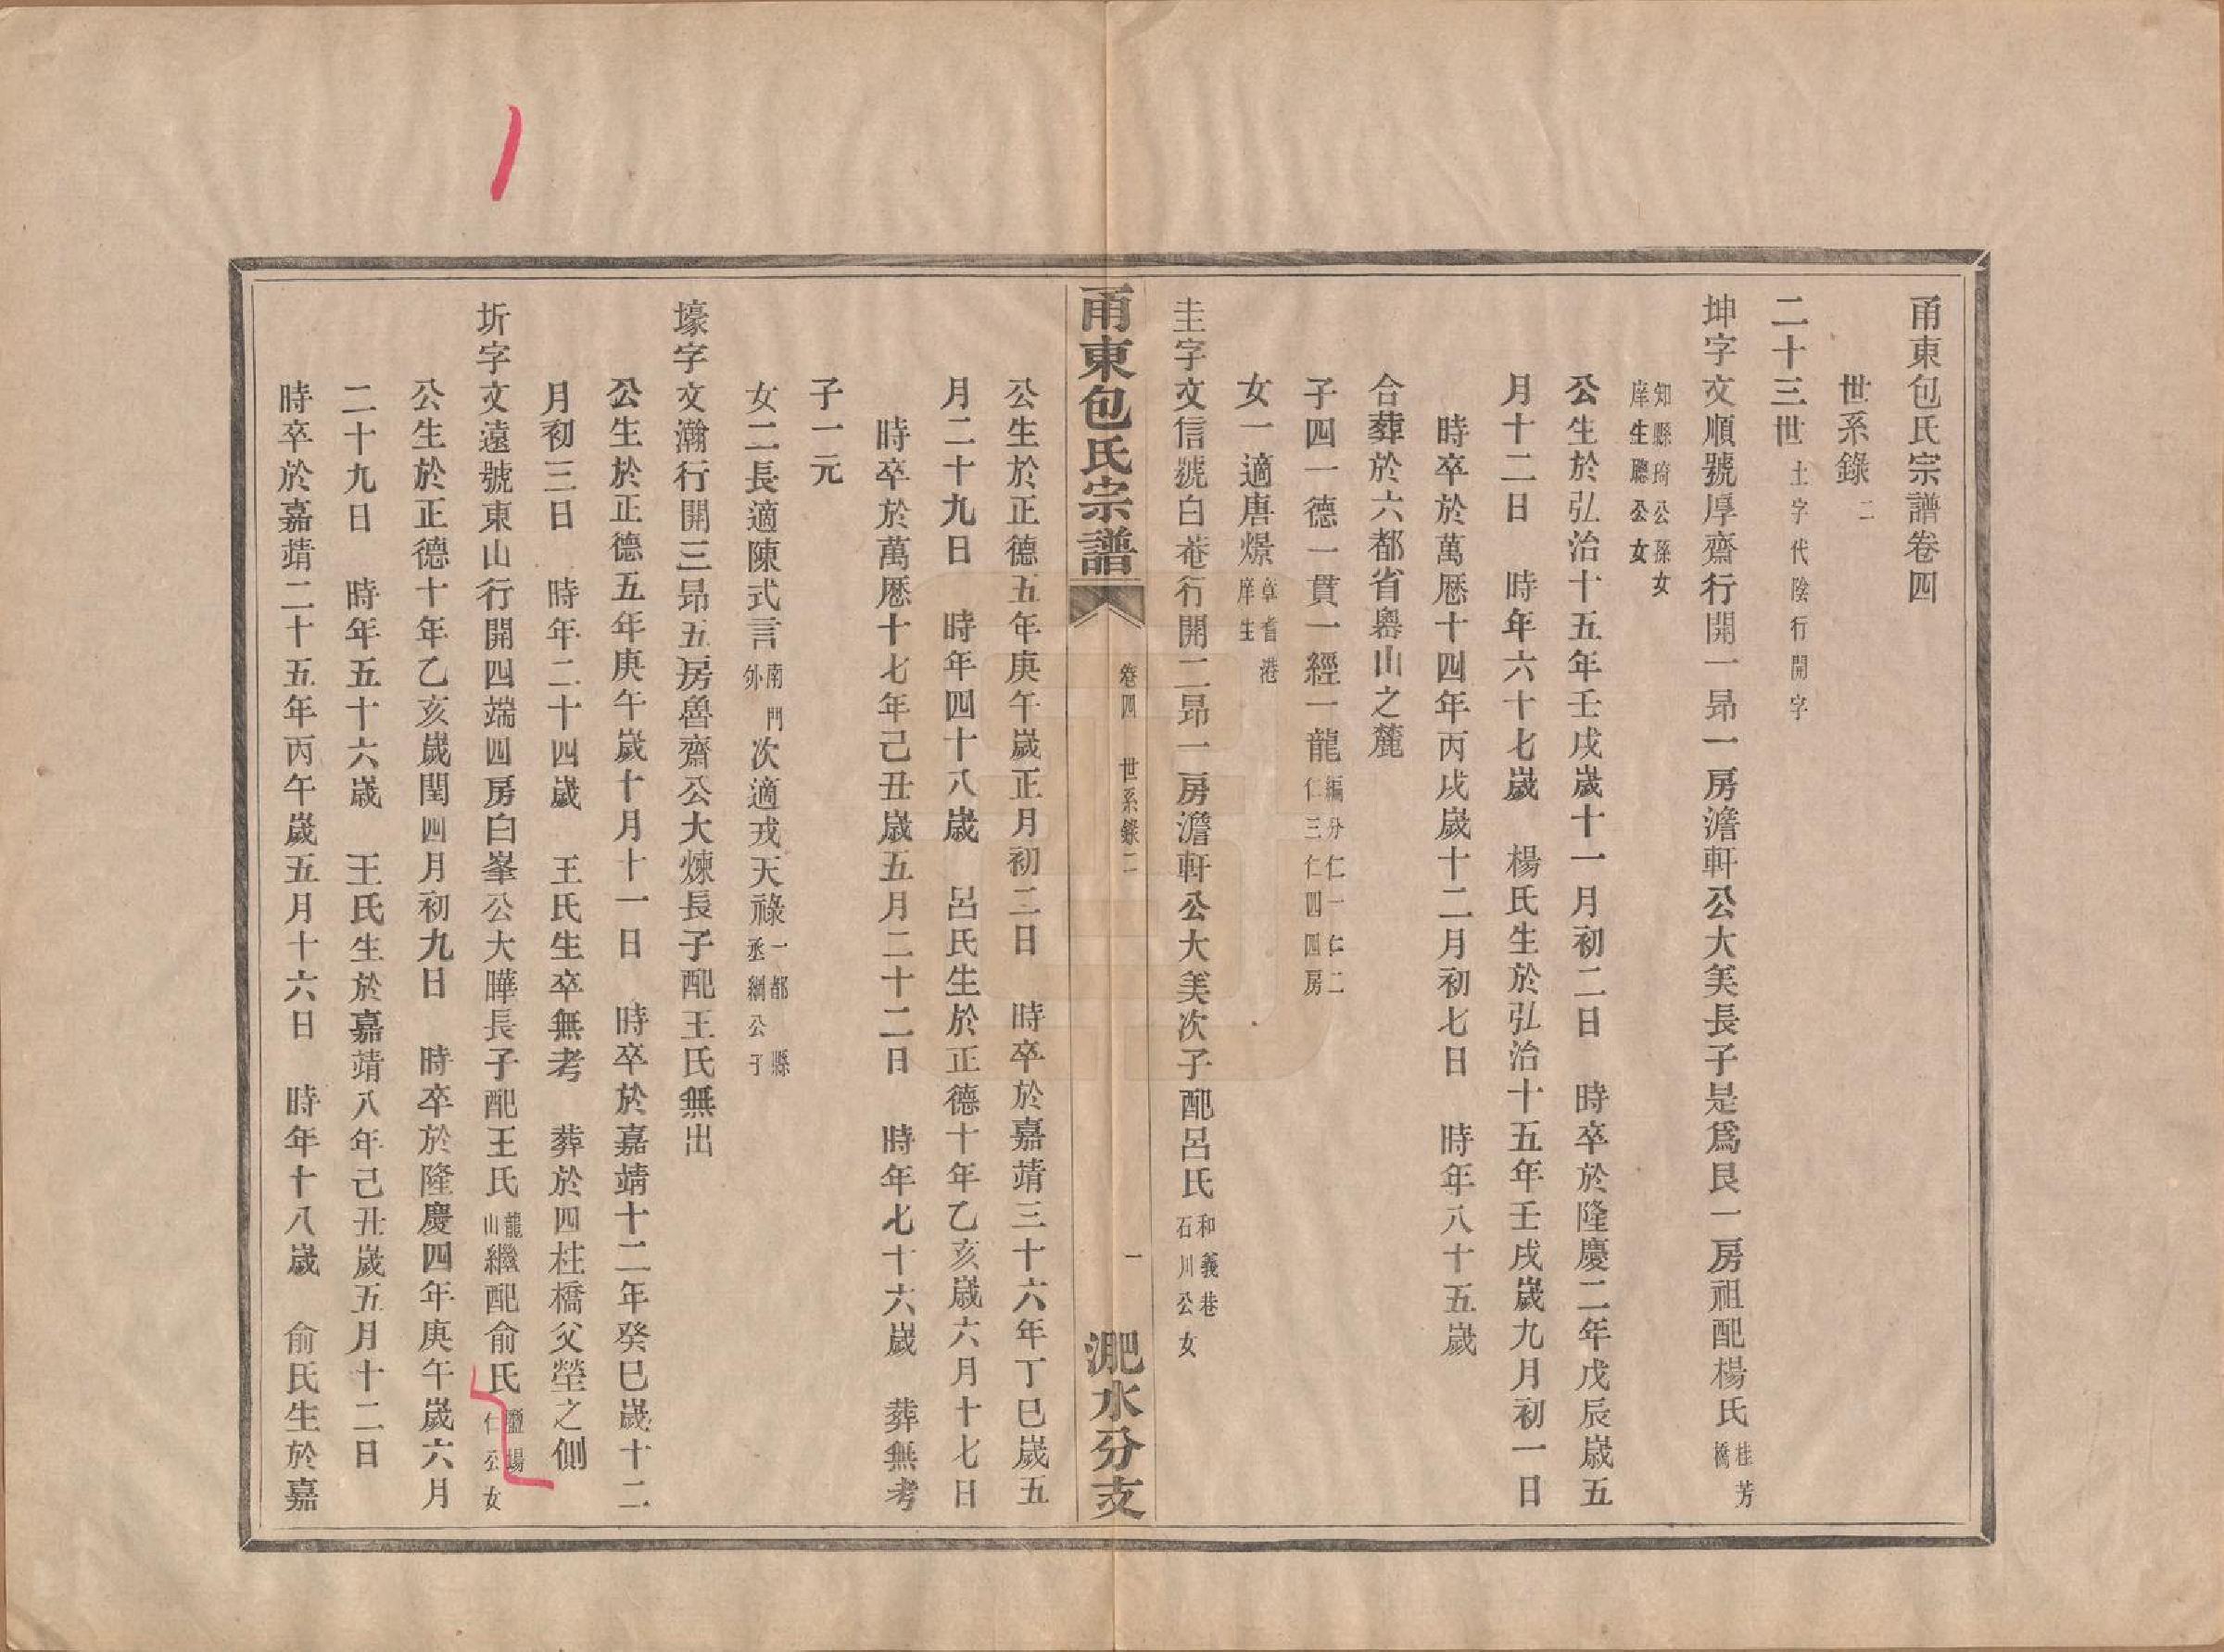 甬東包氏宗譜卷四
世系錄二
二十三世土字代陰行開字
坤字文順號厚齋行開一昂一房澹軒公大美長子是爲艮一房祖配楊氏桂芳橋
知縣琦公孫女庠生聰公女
公生於弘治十五年壬戌歲十一月初二日　時卒於隆慶二年戊辰歲五
月十二日　時年六十七歲　楊氏生於弘治十五年壬戌歲九月初一日
時卒於萬曆十四年丙戌歲十二月初七日　時年八十五歲
合葬於六都省嶴山之麓
子四一德一貫一經一龍編分仁一仁二仁三仁四四房
女一適唐燝章耆港庠生
圭字文信號白菴行開二昂一房澹軒公大美次子配呂氏和義巷石川公女
甬東包氏宗譜　卷四　世系錄二　一　淝水分支
公生於正德五年庚午歲正月初二日　時卒於嘉靖三十六年丁巳歲五
月二十九日　時年四十八歲　呂氏生於正德十年乙亥歲六月十七日
時卒於萬曆十七年己丑歲五月二十二日　時年七十六歲　葬無考
子一元
女二長適陳式言南門外次適戎天祿一都縣丞綱公子
壕字文瀚行開三昂五房魯齋公大煉長子配王氏無出
公生於正德五年庚午歲十月十一日　時卒於嘉靖十二年癸巳歲十二
月初三日　時年二十四歲　王氏生卒無考　葬於四柱橋父塋之側
圻字文遠號東山行開四端四房白峯公大曄長子配王氏龍山繼配俞氏鹽場仁公女
公生於正德十年乙亥歲閏四月初九日　時卒於隆慶四年庚午歲六月
二十九日　時年五十六歲　王氏生於嘉靖八年己丑歲五月十二日
時卒於嘉靖二十五年丙午歲五月十六日　時年十八歲　俞氏生於嘉